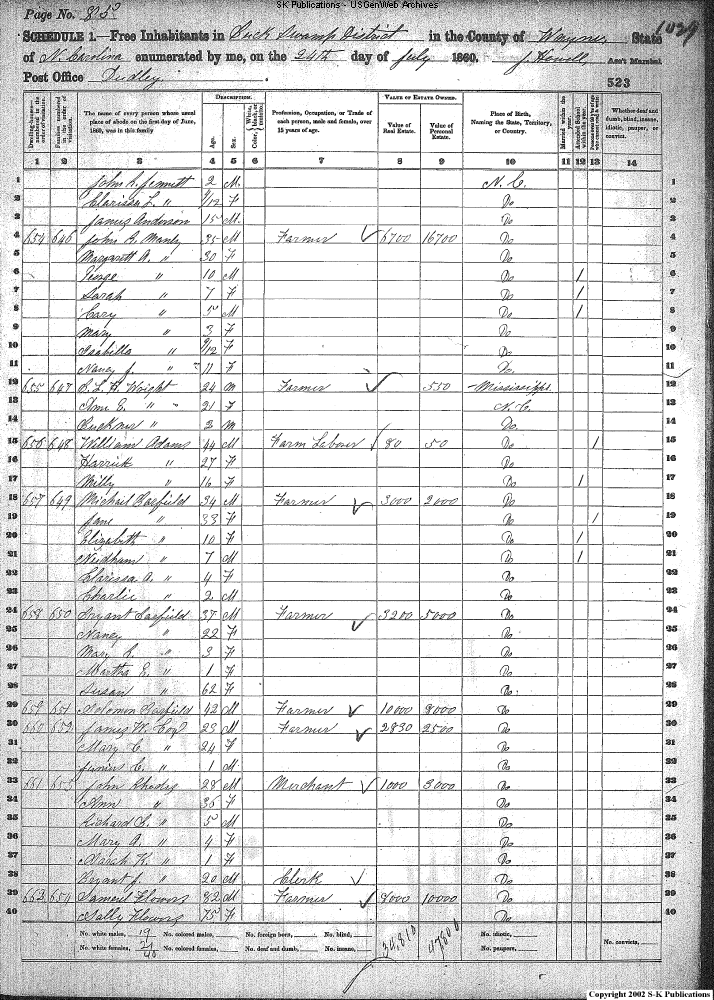 SK Publications - USGenWeb Archives
Page No. 85
SCHEDULE 1.—Free Inhabitants in Buck Swamp District in the County of Wayne State
of N. Carolina enumerated by me, on the 24th day of July 1860. J. Howell Ass't Marshal
Post Office Dudley
523
DESCRIPTION. VALUE OF ESTATE OWNED.
Dwelling-houses—numbered in the order of visitation. Families numbered in the order of visitation. The name of every person whose usual place of abode on the first day of June, 1860, was in this family Age. Sex. Color, White, black, or mulatto. Profession, Occupation, or Trade of each person, male and female, over 15 years of age. Value of Real Estate. Value of Personal Estate. Place of Birth, Naming the State, Territory, or Country. Married within the year. Attended School within the year. Persons over 20 y'rs of age who cannot read & write. Whether deaf and dumb, blind, insane, idiotic, pauper, or convict.
1 2 3 4 5 6 7 8 9 10 11 12 13 14
1 John R. Jennett 2 M N. C. 1
2 Clarissa L. " 9/12 F Do 2
3 James Anderson 15 M Do 3
4 654 646 John G. Manly 35 M Farmer 6700 16700 Do 4
5 Margarett A. " 30 F Do 5
6 George " 10 M Do / 6
7 Sarah " 7 F Do / 7
8 Cary " 5 M Do / 8
9 Mary " 3 F Do 9
10 Isabilla " 9/12 F Do 10
11 Nancy J. " 11 F Do 11
12 655 647 Wright 24 M Farmer 550 Mississippi 12
13 Ann E. " 21 F N. C. 13
14 Buckner " 2 M Do 14
15 656 648 William Adams 44 M Farm Labour 80 50 Do / 15
16 Harriet " 27 F Do 16
17 Milly " 16 F Do / 17
18 657 649 Michael Hatfield 34 M Farmer 3000 2000 Do 18
19 Jane " 33 F Do / 19
20 Elizabeth " 10 F Do / 20
21 Needham " 7 M Do / 21
22 Clarissa A. " 4 F Do 22
23 Charlie " 2 M Do 23
24 658 650 Bryant 37 M Farmer 3200 5000 Do 24
25 Nancy " 22 F Do 25
26 Mary " 3 F Do 26
27 Martha E. " 1 F Do 27
28 Susan " 62 F Do 28
29 659 651 Solomon 42 M Farmer 10000 8000 Do 29
30 660 652 James W. Cox 23 M Farmer 2830 2500 Do 30
31 Mary C. " 24 F Do 31
32 Junius C. " 1 M Do 32
33 661 653 John Rhodes 28 M Merchant 1000 3000 Do 33
34 Ann " 36 F Do 34
35 Richard S. " 5 M Do 35
36 Mary A. " 4 F Do 36
37 Sarah K. " 1 F Do 37
38 Bryant J. " 20 M Clerk Do 38
39 662 654 Samuel Flowers 82 M Farmer 8000 10000 Do 39
40 Sally Flowers 75 F Do 40
No. white males, 19 No. colored males, No. foreign born, No. blind, No. idiotic, No. convicts,
No. white females, 21 No. colored females, No. deaf and dumb, No. insane, 34,810 No. paupers,
40
Copyright 2002 S-K Publications